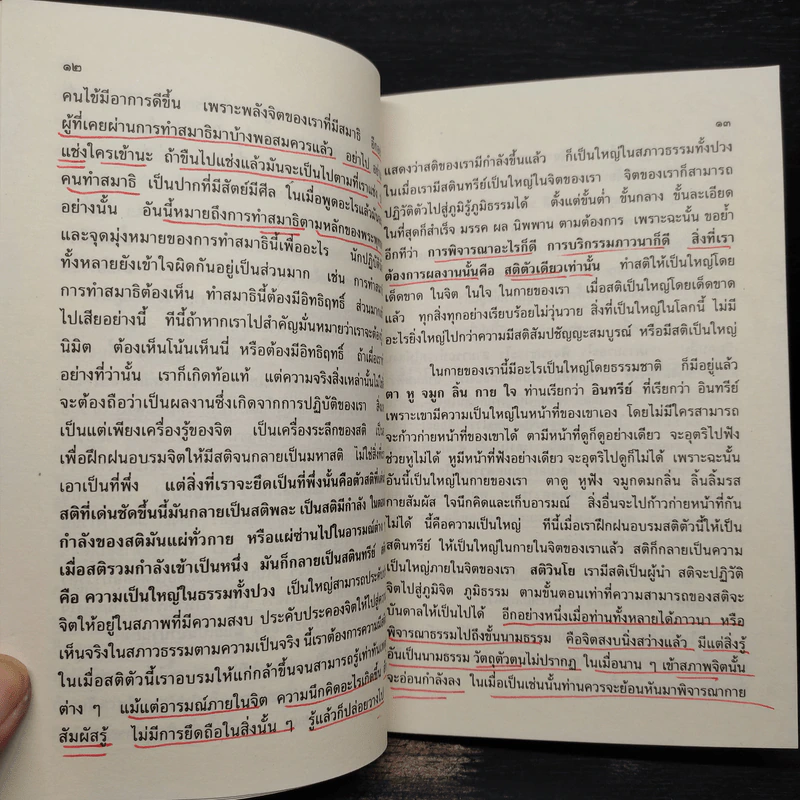 ๑๒
คนไข้มีอาการดีขึ้น เพราะพลังจิตของเราที่มีสมาธิ
ผู้ที่เคยผ่านการทำสมาธิมาบ้างพอสมควรแล้ว อย่าไป
แช่งใครเข้านะ ถ้าขืนไปแช่งแล้วมันจะเป็นไปตามที่เราแช่ง
คนทำสมาธิ เป็นปากที่มีสัตย์มีศีล ในเมื่อพูดอะไรแล้วมัน
อย่างนั้น อันนี้หมายถึงการทำสมาธิตามหลักของพระ
และจุดมุ่งหมายของการทำสมาธินี้เพื่ออะไร นักปฏิบัติ
ทั้งหลายยังเข้าใจผิดกันอยู่เป็นส่วนมาก เช่น การทำ
การทำสมาธิต้องเห็น ทำสมาธินี้ต้องมีอิทธิฤทธิ์ ส่วนมาก
ไปเสียอย่างนี้ ทีนี้ถ้าหากเราไปสำคัญมั่นหมายว่าเราจะต้อง
นิมิต ต้องเห็นโน้นเห็นนี่ หรือต้องมีอิทธิฤทธิ์ ถ้าเมื่อ
อย่างที่ว่านั้น เราก็เกิดท้อแท้ แต่ความจริงสิ่งเหล่านั้น
จะต้องถือว่าเป็นผลงานซึ่งเกิดจากการปฏิบัติของเรา
เป็นแต่เพียงเครื่องรู้ของจิต เป็นเครื่องระลึกของสติ เป็น
เพื่อฝึกฝนอบรมจิตให้มีสติจนกลายเป็นมหาสติ ไม่ใช่สิ่งที่
เอาเป็นที่พึ่ง แต่สิ่งที่เราจะยึดเป็นที่พึ่งนั้นคือตัวสติที่
สติที่เด่นชัดขึ้นนี้มันกลายเป็นสติพละ เป็นสติมีกำลัง
กำลังของสติมันแผ่ทั่วกาย หรือแผ่ซ่านไปในอารมณ์
เมื่อสติรวมกำลังเข้าเป็นหนึ่ง มันก็กลายเป็นสตินทรีย์
คือ ความเป็นใหญ่ในธรรมทั้งปวง เป็นใหญ่สามารถประคับ
จิตให้อยู่ในสภาพที่มีความสงบ ประคับประคองจิตให้ไปสู่ความ
เห็นจริงในสภาวธรรมตามความเป็นจริง นี้เราต้องการความมีสติ
ในเมื่อสติตัวนี้เราอบรมให้แก่กล้าขึ้นจนสามารถรู้เท่าทัน
ต่าง ๆ แม้แต่อารมณ์ภายในจิต ความนึกคิดอะไรเกิดขึ้น
สัมผัสรู้ ไม่มีการยึดถือในสิ่งนั้น ๆ รู้แล้วก็ปล่อยวางไป
๑๓
แสดงว่าสติของเรามีกำลังขึ้นแล้ว ก็เป็นใหญ่ในสภาวธรรมทั้งปวง
ในเมื่อเรามีสตินทรีย์เป็นใหญ่ในจิตของเรา จิตของเราก็สามารถ
ปฏิวัติตัวไปสู่ภูมิรู้ภูมิธรรมได้ ตั้งแต่ขั้นต่ำ ขั้นกลาง ขั้นละเอียด
ในที่สุดก็สำเร็จ มรรค ผล นิพพาน ตามต้องการ เพราะฉะนั้น ขอย้ำ
อีกทีว่า การพิจารณาอะไรก็ดี การบริกรรมภาวนาก็ดี สิ่งที่เรา
ต้องการผลงานนั้นคือ สติตัวเดียวเท่านั้น ทำสติให้เป็นใหญ่โดย
เด็ดขาด ในจิต ในใจ ในกายของเรา เมื่อสติเป็นใหญ่โดยเด็ดขาด
แล้ว ทุกสิ่งทุกอย่างเรียบร้อยไม่วุ่นวาย สิ่งที่เป็นใหญ่ในโลกนี้ ไม่มี
อะไรยิ่งใหญ่ไปกว่าความมีสติสัมปชัญญะสมบูรณ์ หรือมีสติเป็นใหญ่
ในกายของเรานี้มีอะไรเป็นใหญ่โดยธรรมชาติ ก็มีอยู่แล้ว
ตา หู จมูก ลิ้น กาย ใจ ท่านเรียกว่า อินทรีย์ ที่เรียกว่า อินทรีย์
เพราะเขามีความเป็นใหญ่ในหน้าที่ของเขาเอง โดยไม่มีใครสามารถ
จะก้าวก่ายหน้าที่ของเขาได้ ตามีหน้าที่ดูก็ดูอย่างเดียว จะอุตริไปฟัง
ช่วยหูไม่ได้ หูมีหน้าที่ฟังอย่างเดียว จะอุตริไปดูก็ไม่ได้ เพราะฉะนั้น
อันนี้เป็นใหญ่ในกายของเรา ตาดู หูฟัง จมูกดมกลิ่น ลิ้นลิ้มรส
กายสัมผัส ใจนึกคิดและเก็บอารมณ์ สิ่งอื่นจะไปก้าวก่ายหน้าที่กัน
ไม่ได้ นี้คือความเป็นใหญ่ ทีนี้เมื่อเราฝึกฝนอบรมสติตัวนี้ให้เป็น
สตินทรีย์ ให้เป็นใหญ่ในกายในจิตของเราแล้ว สติก็กลายเป็นความ
เป็นใหญ่ภายในจิตของเรา สติวินโย เรามีสติเป็นผู้นำ สติจะปฏิวัติ
จิตไปสู่ภูมิจิต ภูมิธรรม ตามขั้นตอนเท่าที่ความสามารถของสติจะ
บันดาลให้เป็นไปได้ อีกอย่างหนึ่งเมื่อท่านทั้งหลายได้ภาวนา หรือ
พิจารณาธรรมไปถึงขั้นนามธรรม คือจิตสงบนิ่งสว่างแล้ว มีแต่สิ่งรู้
อันเป็นนามธรรม วัตถุตัวตนไม่ปรากฏ ในเมื่อนาน ๆ เข้าสภาพจิตนั้น
จะอ่อนกำลังลง ในเมื่อเป็นเช่นนั้นท่านควรจะย้อนหันมาพิจารณากาย